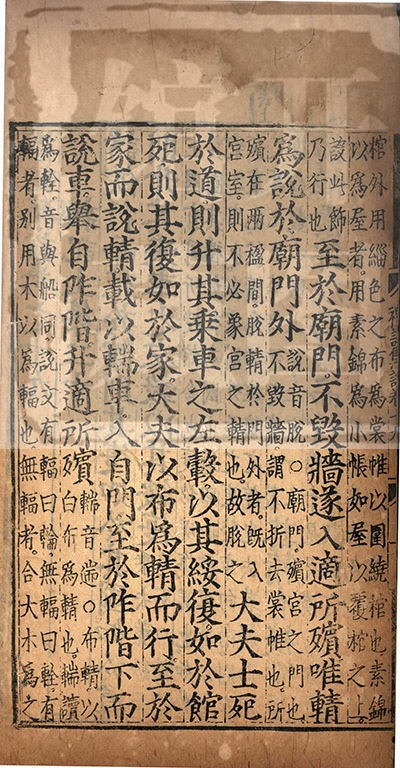 棺外用緇色之布爲裳帷以圍繞棺也素錦
以爲屋者用素錦爲小帳如屋以覆棺之上
設此飾
乃行也
至於廟門不毁牆遂入適所殯唯輤
爲說於廟門外
說音脫○廟門殯宮之門也
不毁牆謂不折去裳帷也所
殯在兩楹間脫輤於門外者旣入
宮室則不必象宮之輤也故脫之
大夫士死
於道則升其乘車之左轂以其綏復如於館
死則其復如於家大夫以布爲輤而行至於
家而說輤載以輲車入自門至於阼階下而
說車舉自阼階升適所殯
輲音遄○布輤以
白布爲輤也輲讀
爲輇音與船同說文有輻曰輪無輻曰輇有
輻者別用木以爲輻也無輻者合大木爲之